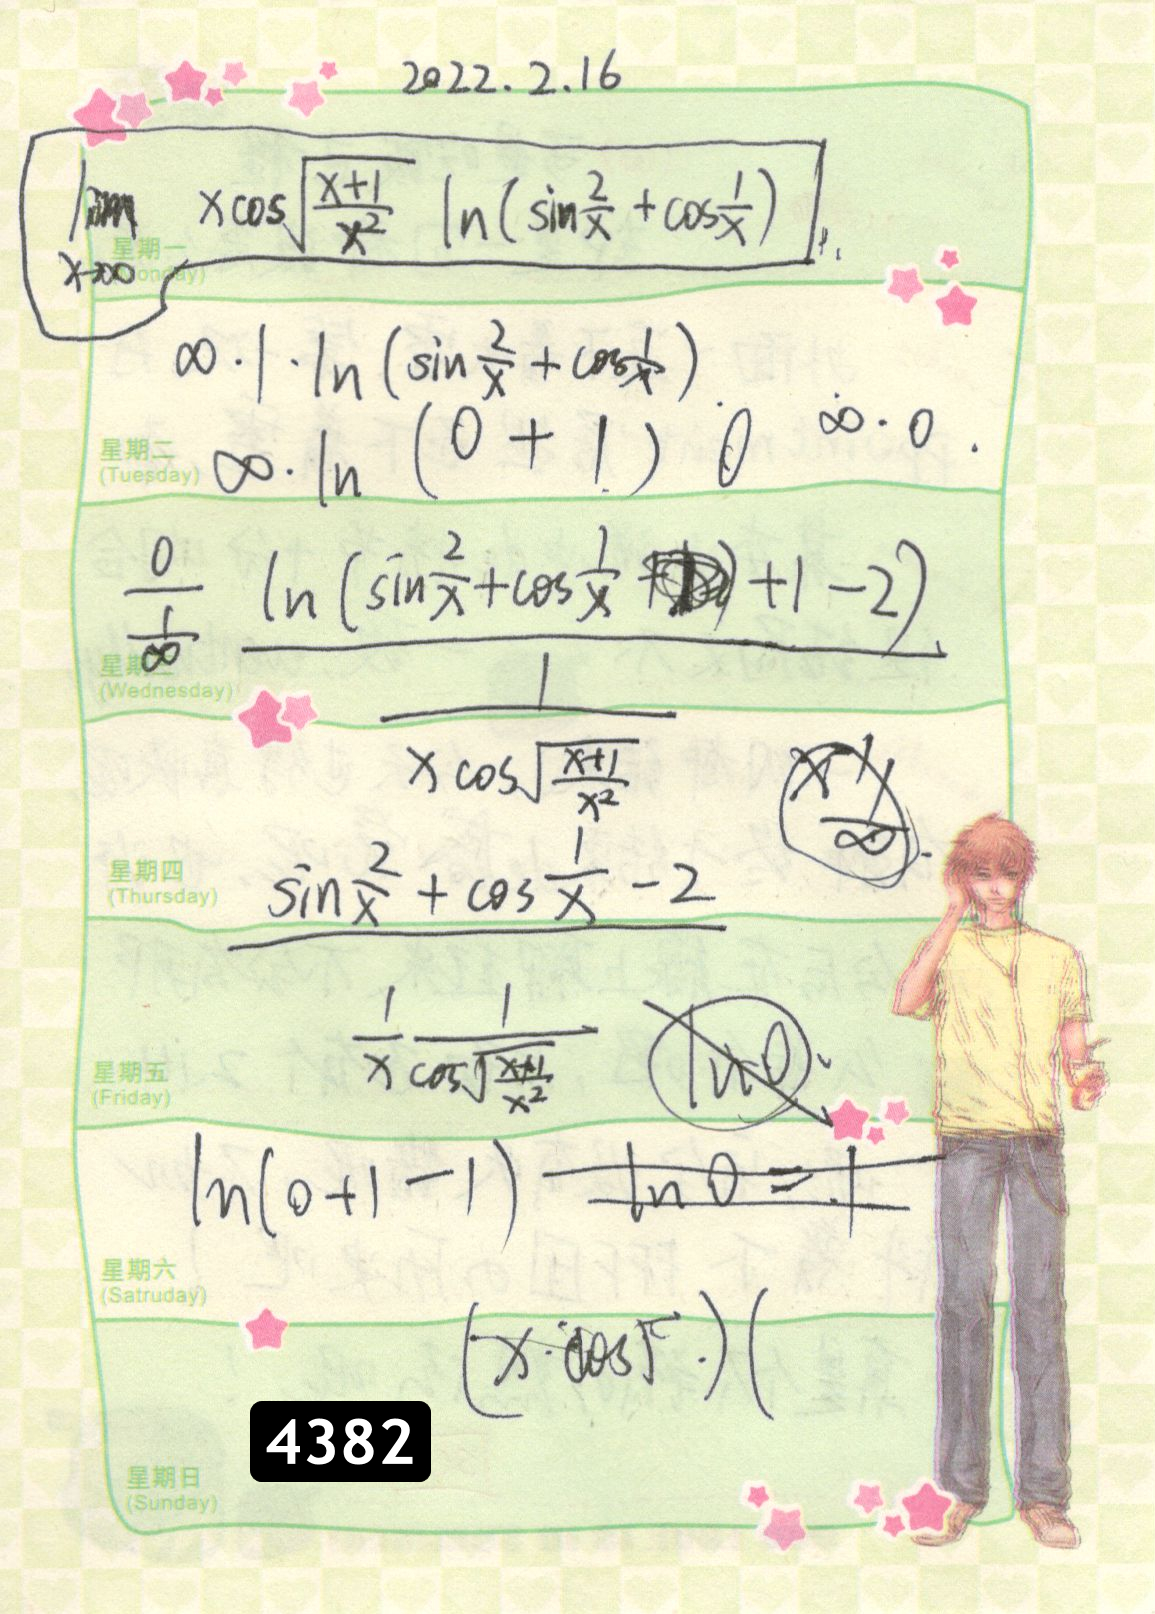 2022.2.16
lim x cos√((x+1)/x²) ln(sin 2/x + cos 1/x)
x→∞
星期一
(Monday)
∞·1·ln(sin 2/x + cos 1/x)
∞·ln(0+1) 0 ∞·0.
星期二
(Tuesday)
0 ln(sin 2/x + cos 1/x +1-2)
1/∞
星期三
(Wednesday)
1
x cos√((x+1)/x²)
x 1/∞
星期四
(Thursday)
sin 2/x + cos 1/x - 2
1/x 1/cos√((x+1)/x²) ln0
星期五
(Friday)
ln(0+1-1) ln0=1
星期六
(Satruday)
(x·cos√ ·)(
4382
星期日
(Sunday)